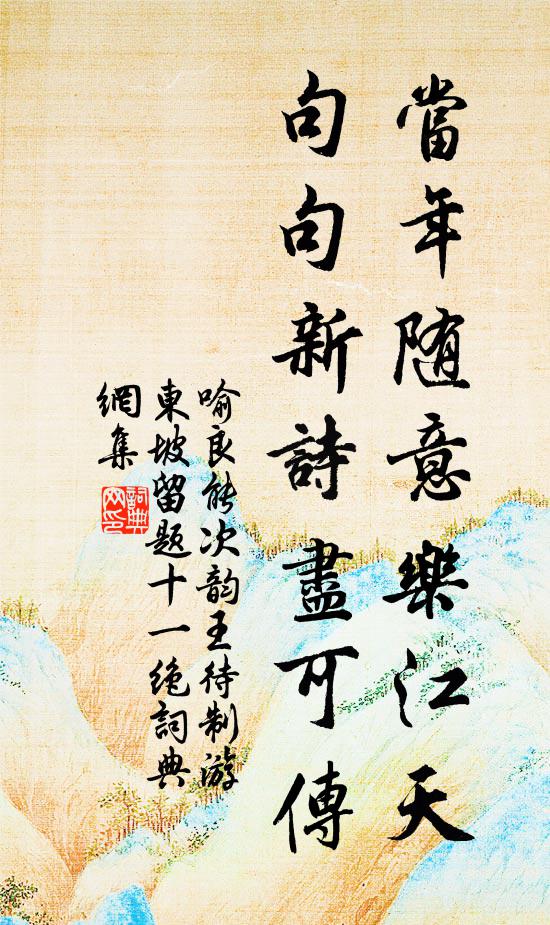 當年随意樂江天
句句新詩盡可傳
喻良能次韵王待制游
東坡留题十一绝詞典
網集
詞典
网印